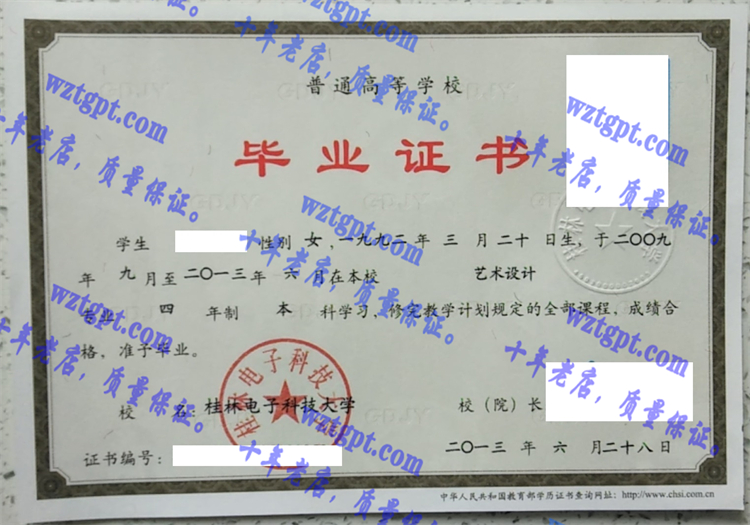 普通高等学校
毕业证书
学生 性别 女,一九九二年 三 月二十 日生,于二〇〇九
年 九 月至二〇一三年 六 月在本校 艺术设计
专业 四 年制 本 科学习,修完教学计划规定的全部课程,成绩合
格,准予毕业。
校 名:桂林电子科技大学 校(院)长
证书编号: 二〇一三 年 六 月二十八日
中华人民共和国教育部学历证书查询网址:http://www.chsi.com.cn
桂林电子科技大
十年老店,质量保证。
wztgpt.com
十年老店,质量保证。
wztgpt.com
十年老店,质量保证。
wztgpt.com
十年老店,质量保证。
wztgpt.com
十年老店,质量保证。
wztgpt.com
十年老店,质量保证。
wztgpt.com
十年老店,质量保证。
wztgpt.com
十年老店,质量保证。
wztgpt.com
十年老店,质量保证。